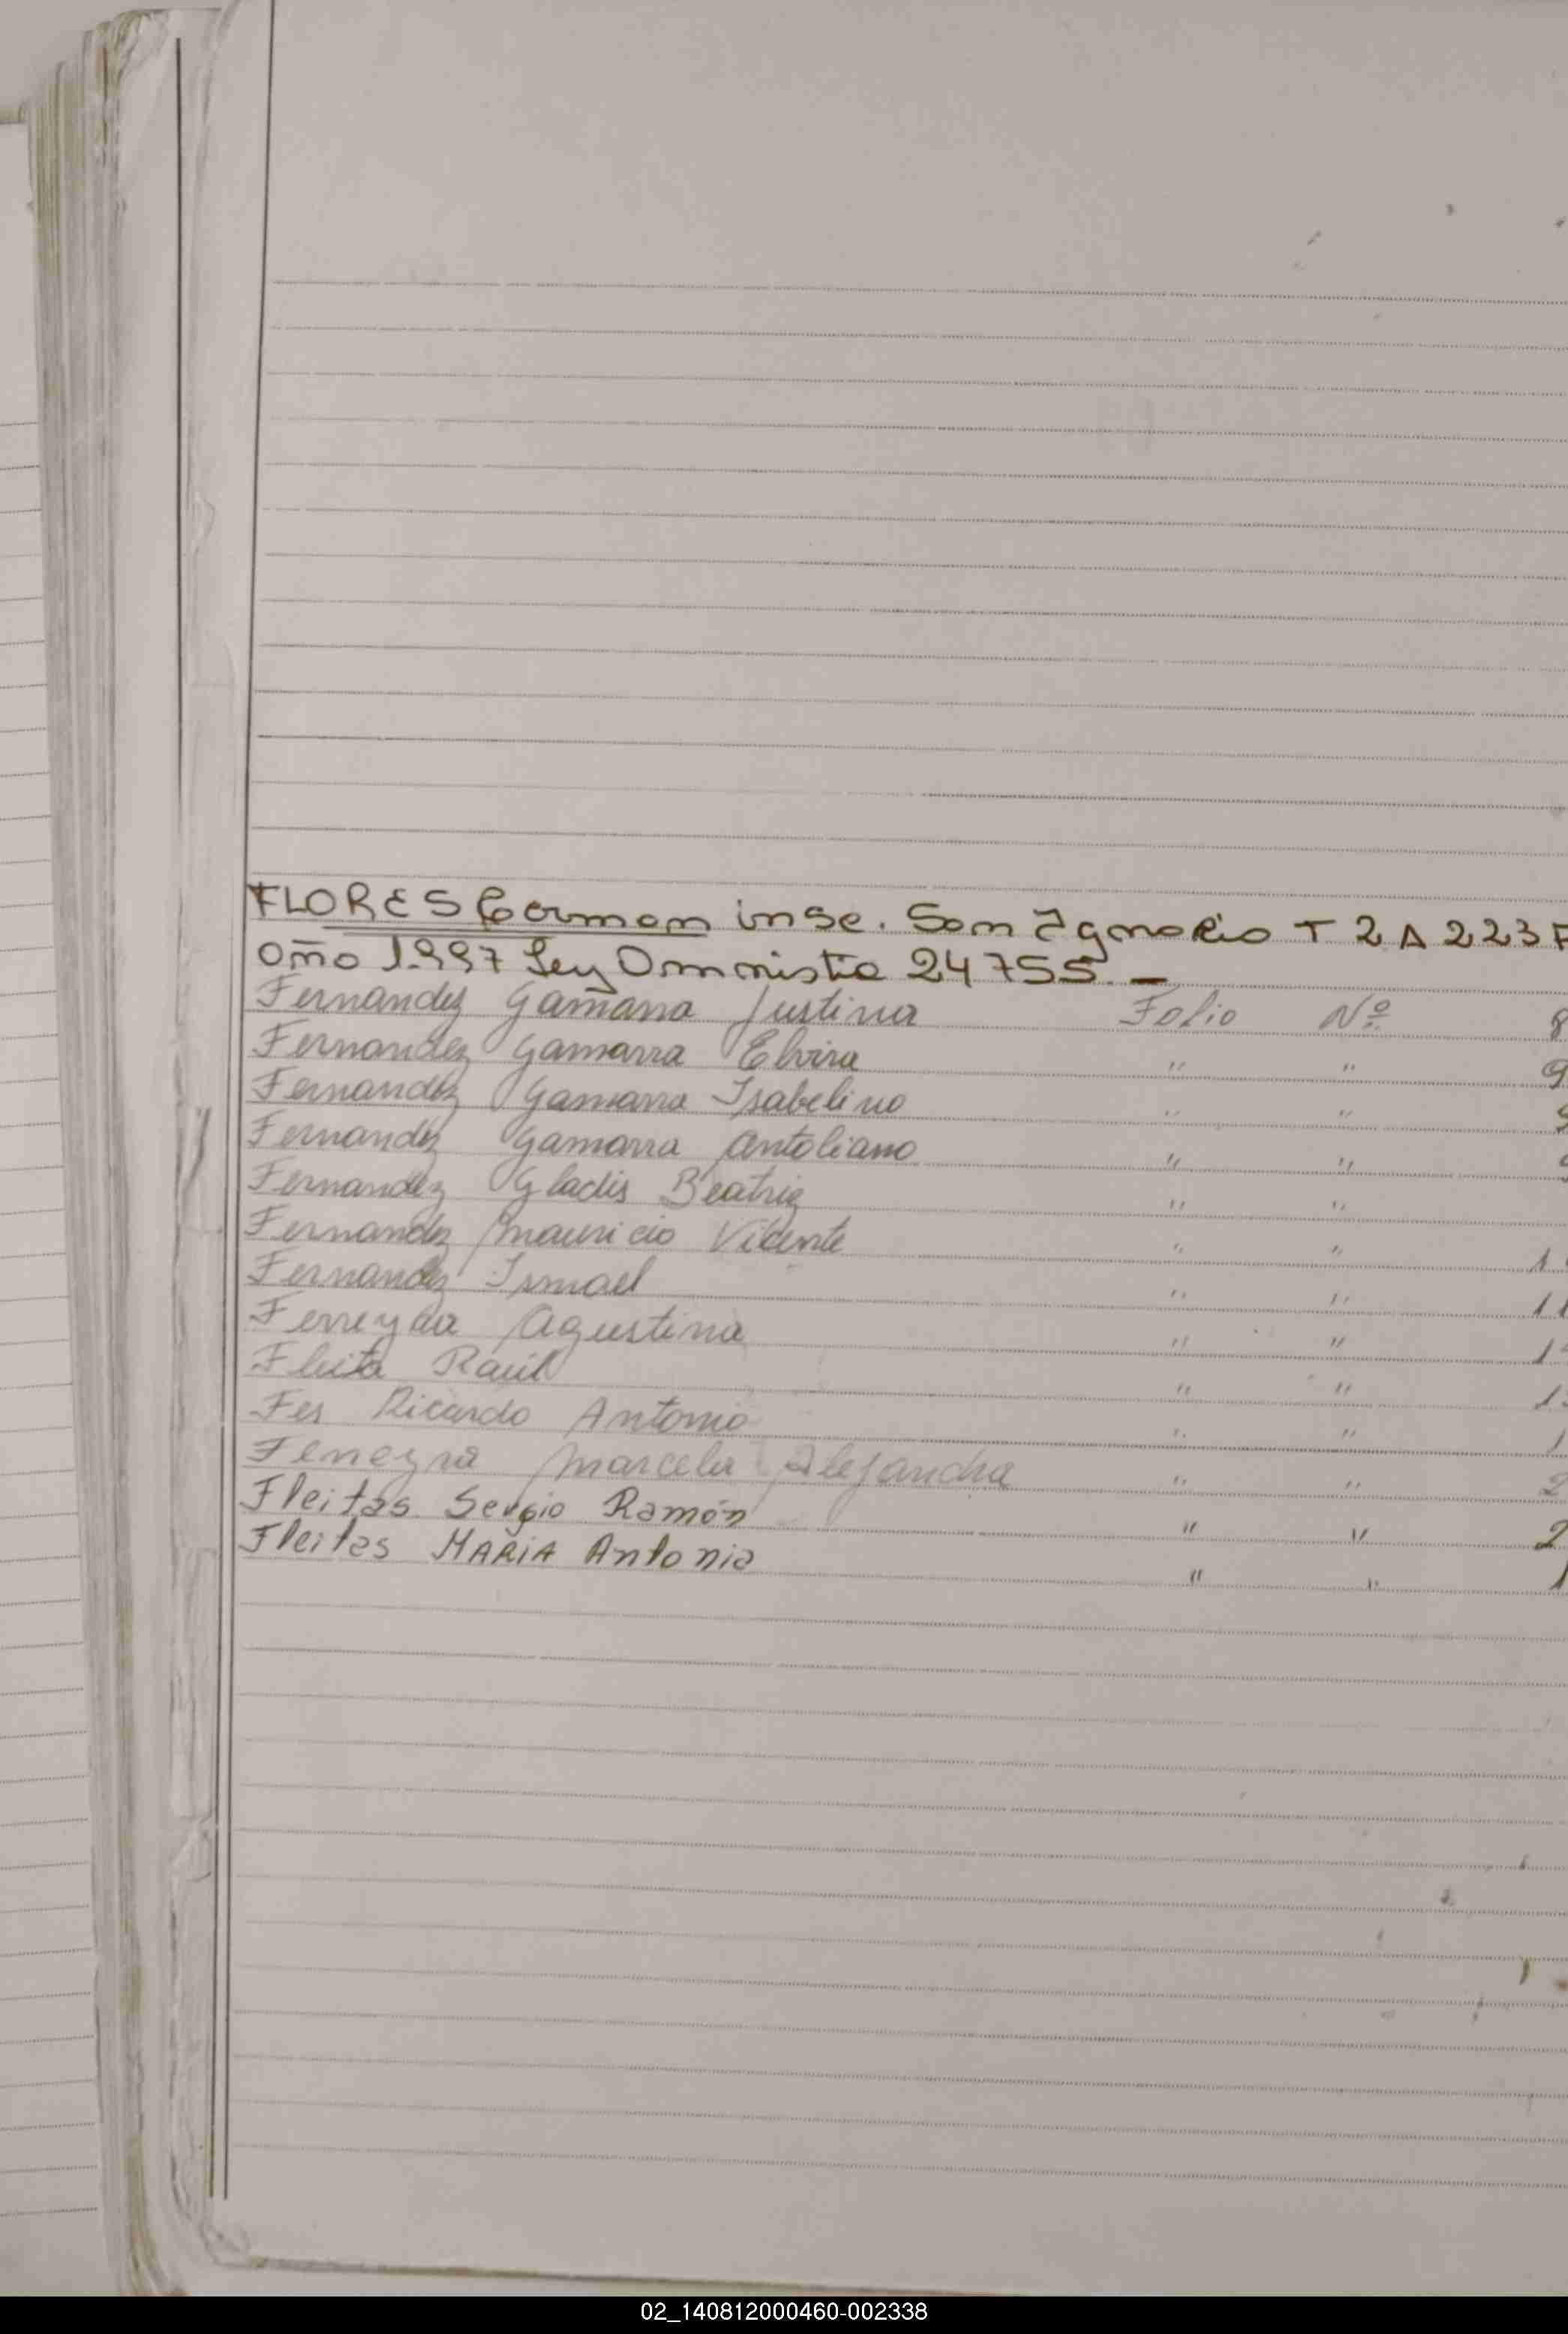 FLORES Carmen insc. San Ignacio T 2 A 223 F
año 1.997 Ley Amnistia 24755. —
Fernandez Gamarra Justina Folio Nº 8
Fernandez Gamarra Elvira " " 9
Fernandez Gamarra Isabelino " "
Fernandez Gamarra Antoliano " "
Fernandez Gladis Beatriz " "
Fernandez Mauricio Vicente " " 1
Fernandez Ismael " " 11
Ferreyra Agustina " " 1
Fleita Raúl " " 1
Fes Ricardo Antonio " " 1
Ferreyra Marcela Alejandra " " 2
Fleitas Sergio Ramón " " 2
Fleitas MARIA Antonia " " 1
02_140812000460-002338